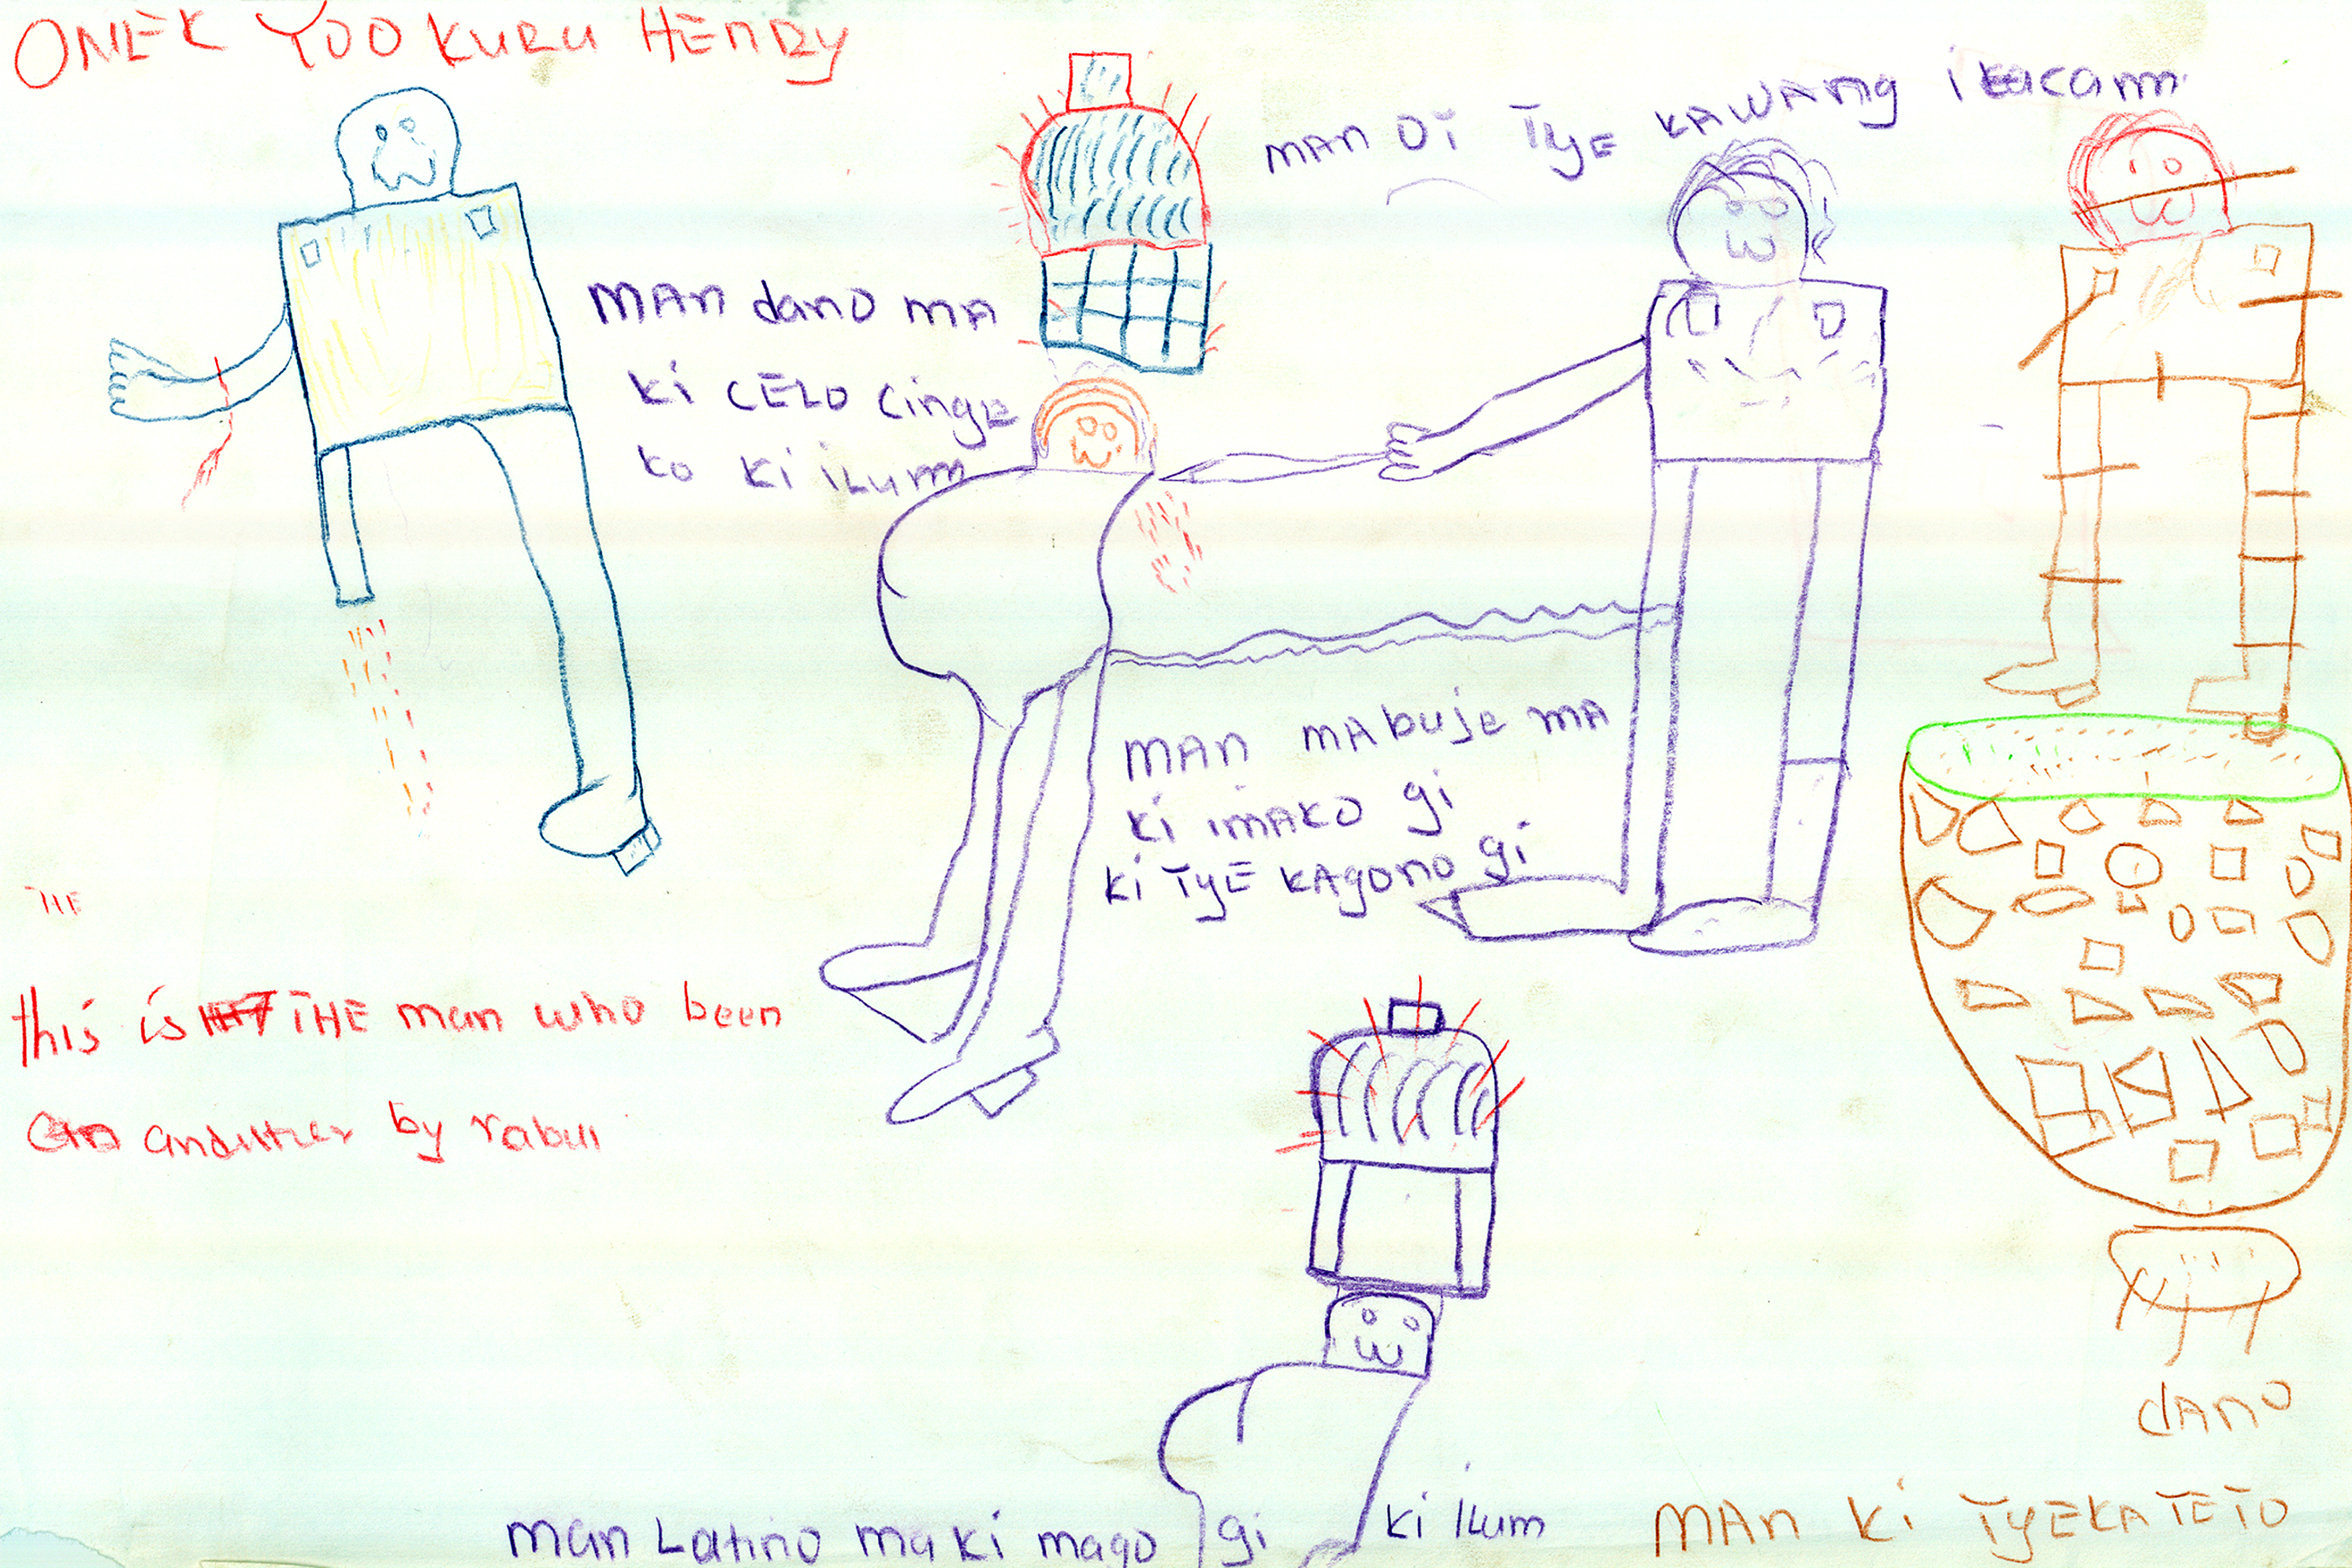 ONEK YOO KURU HENRY
MAN Oi TyE KAWANg i kacam
MAN dano MA
Ki CELO Cinge
ko Ki iLum
MAN MAbuje MA
Ki iMAKO gi
Ki TyE KAgono gi
THE
this is THE man who been
by
dANO
Man Latino ma ki mago gi ki ilum
MAN Ki TyEKA TETO